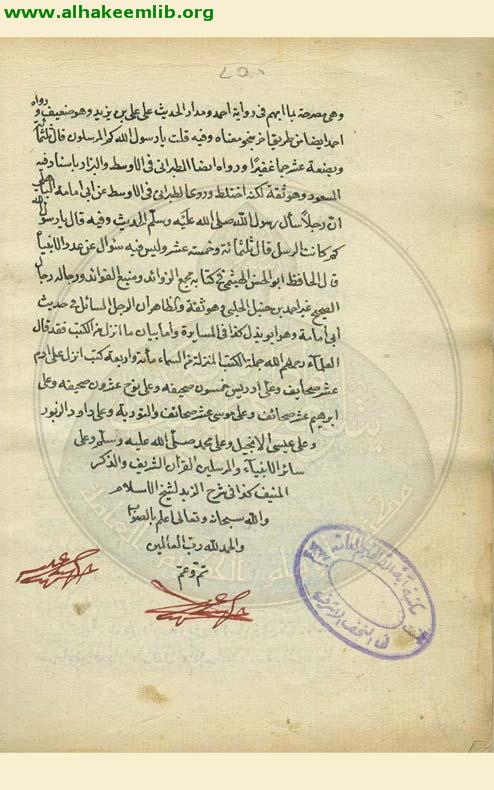 www.alhakeemlib.org
وهي مصرحة بما ابهم في رواية احمد ومدار الحديث على علي بن يزيد وهو ضعيف ورواه
احمد ايضا من طريق اخر بنحو معناه وفيه قلت يا رسول الله كم المرسلون قال ثلثمائة
وبضعة عشر جما غفيرا ورواه ايضا الطبراني في الاوسط والبزار باسناد فيه
المسعودي وهو ثقة لكنه اختلط وروى الطبراني في الاوسط عن ابي امامة الباهلي
ان رجلا سأل رسول الله صلى الله عليه وسلم الحديث وفيه قال يا رسول الله
كم كانت الرسل قال ثلثمائة وخمسة عشر وليس فيه سؤال عن عدد الانبياء
قال الحافظ ابو الحسن الهيثمي في كتابه مجمع الزوائد ومنبع الفوائد ورجاله رجال
الصحيح غير احمد بن خليل الحلبي وهو ثقة والظاهر ان الرجل السائل في حديث
ابي امامة وهو ابو ذر كذا في المسايرة واما بيان ما انزل من الكتب فقد قال
العلماء رحمهم الله جملة الكتب المنزلة من السماء مائة واربعة كتب انزل على ادم
عشر صحايف وعلى ادريس خمسون صحيفه وعلى نوح عشرون صحيفه وعلى
ابرهيم عشر صحائف وعلى موسى عشر صحائف والتورية وعلى داود الزبور
وعلى عيسى الانجيل وعلى محمد صلى الله عليه وسلم وعلى
سائر الانبياء والمرسلين القرآن الشريف والذكر
المنيف كذا في شرح الزبد لشيخ الاسلام
والله سبحانه وتعالى اعلم بالصواب
والحمد لله رب العالمين
تم وعم